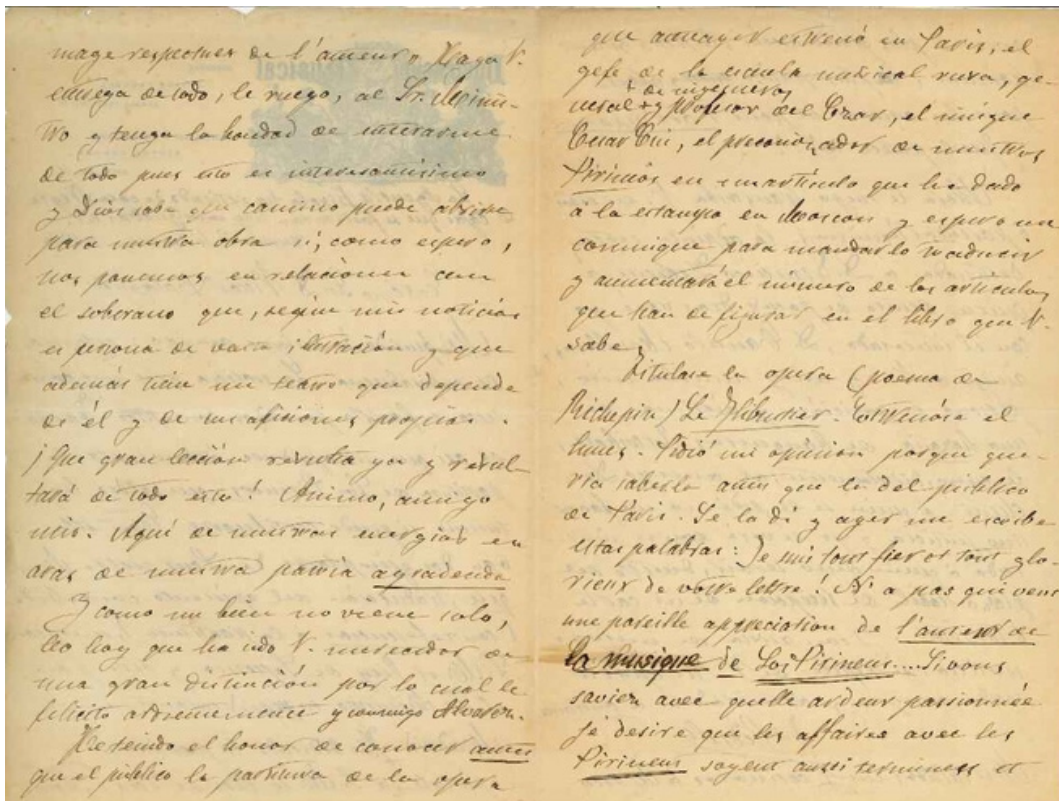 mage respectueux de l'auteur" Haga V.
entrega de todo, le ruego, al Sr. Minis-
tro y tenga la bondad de enterarme
de todo pues esto es interesantísimo
y Dios sabe que camino puede abrirse
para nuestra obra si, como espero,
nos ponemos en relaciones con
el soberano que, según mis noticias
es persona de vasta ilustración y que
además tiene un teatro que depende
de él y de sus aficiones propias.
¡Que gran lección resulta ya y resul-
tará de todo esto! Animo, amigo
mio. Aquí de nuestras energías en
aras de nuestra patria agradecida
Y como un bien no viene solo,
leo hoy que ha sido V. merecedor de
una gran distinción por lo cual le
felicito ardientemente y conmigo Alvarez.
He tenido el honor de conocer antes
que el público la partitura de la opera
que anteayer estrenó en Paris, el
gefe de la escuela musical rusa, ge-
neral + y profesor del Czar, el insigne
+ de ingenieros
Cesar Cui, el preconizador de nuestros
Pirineos en un artículo que ha dado
à la estampa en Moscou y espero me
comunique para mandarlo traducir
y aumentará el número de los artículos
que han de figurar en el libro que V.
sabe.
Titulase la opera (poema de
Richepin) Le Flibustier. Estrenóse el
lunes. Pidió mi opinion porque que-
ria saberla antes que la del público
de Paris. Se la dí y ayer me escribe
estas palabras: Je suis tout fier et tout glo-
rieux de votre lettre! N'a pas qui veut
une pareille appreciation de l'auteur de
la musique de Los Pirineus.... Si vous
saviez avec quelle ardeur passionnée
je desire que les affaires avec les
Pirineus soyent aussi terminees et